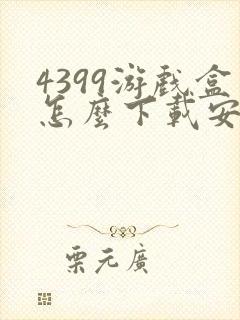 4399游戲盒
怎麼下載安
栗元廣